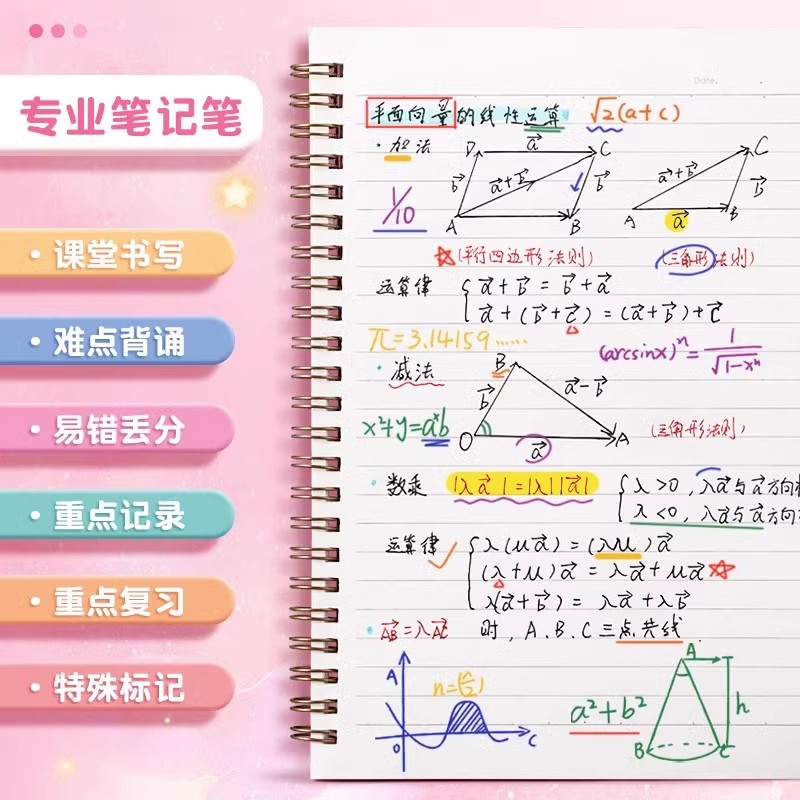 专业笔记笔
· 课堂书写
· 难点背诵
· 易错丢分
· 重点记录
· 重点复习
· 特殊标记
Date.
平面向量的线性运算 √2(a+c)
· 加法
D a⃗ C
b⃗ a⃗+b⃗ b⃗
A B
1/10
C
a⃗+b⃗ b⃗
A a⃗ B
☆(平行四边形法则) (三角形法则)
运算律 { a⃗+b⃗=b⃗+a⃗
a⃗+(b⃗+c⃗)=(a⃗+b⃗)+c⃗
π=3.14159……
(arcsinx)ⁿ=1/√1-xⁿ
· 减法
B
b⃗ a⃗-b⃗
O a⃗ A
x²+y=aˣb
(三角形法则)
· 数乘 |λa⃗|=|λ||a⃗| { λ>0, λa⃗与a⃗方向
λ<0, λa⃗与a⃗方向
运算律 { λ(μa⃗)=(λμ)a⃗
(λ+μ)a⃗=λa⃗+μa⃗☆
λ(a⃗+b⃗)=λa⃗+λb⃗
· AB⃗=λAC⃗ 时, A.B.C三点共线.
A
0 C
a²+b²
A
h
B C